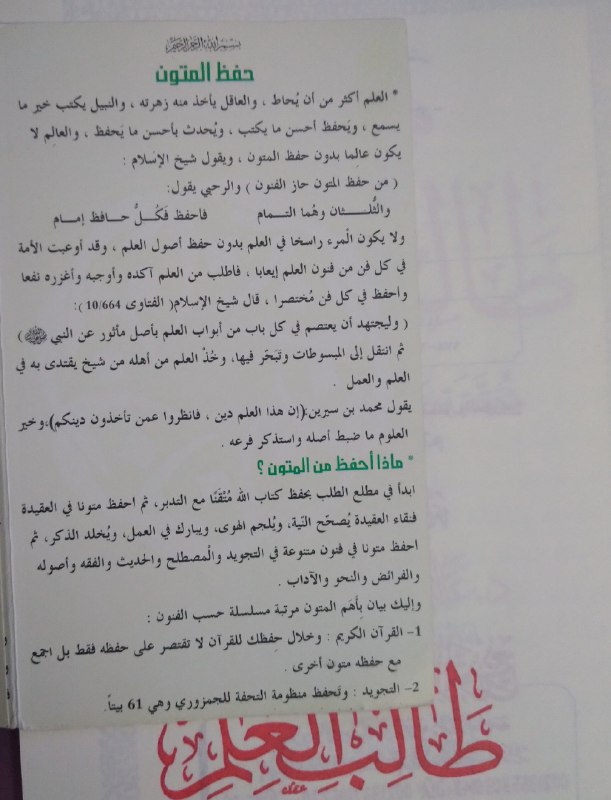 بسم الله الرحمن الرحيم
حفظ المتون
* العلم أكثر من أن يُحاط ، والعاقل يأخذ منه زهرته ، والنبيل يكتب خير ما
يسمع ، ويَحفظ أحسن ما يكتب ، ويُحدث بأحسن ما يَحفظ ، والعالِم لا
يكون عالِما بدون حفظ المتون ، ويقول شيخ الإسلام :
( من حفظ المتون حاز الفنون ) والرحبي يقول:
والثُّلــثان وهُما التــمام فاحفظ فَكُــلُّ حــافظ إمــام
ولا يكون الْمرء راسخا في العلم بدون حفظ أصول العلم ، وقد أوعبت الأمة
في كل فن من فنون العلم إيعابا ، فاطلب من العلم آكده وأوجبه وأغزره نفعا
واحفظ في كل فن مُختصرا ، قال شيخ الإسلام( الفتاوى 10/664 ):
( وليجتهد أن يعتصم في كل باب من أبواب العلم بأصل مأثور عن النبي ﷺ )
ثم انتقل إلى المبسوطات وتَبَحّر فيها، وخُذْ العلم من أهله من شيخ يقتدى به في
العلم والعمل .
يقول محمد بن سيرين:(إن هذا العلم دين ، فانظروا عمن تأخذون دينكم)،وخير
العلوم ما ضبط أصله واستذكر فرعه .
* ماذا أحفظ من المتون ؟
ابدأ في مطلع الطلب بحفظ كتاب الله مُتْقَنًا مع التدبر، ثم احفظ متونا في العقيدة
فنقاء العقيدة يُصحّح النّية، ويُلجم الهوى، ويبارك في العمل، ويُخلد الذكر، ثم
احفظ متونا في فنون متنوعة في التجويد والْمصطلح والحديث والفقه وأصوله
والفرائض والنحو والآداب .
وإليك بيان بِأَهَم المتون مرتبة مسلسلة حسب الفنون :
1- القرآن الكريم : وخلال حِفظك للقرآن لا تقتصر على حفظه فقط بل اجمع
مع حفظه متون أخرى .
2- التجويد : وتَحفظ منظومة التحفة للجمزوري وهي 61 بيتاً.
طَالِبِ العِلْمِ